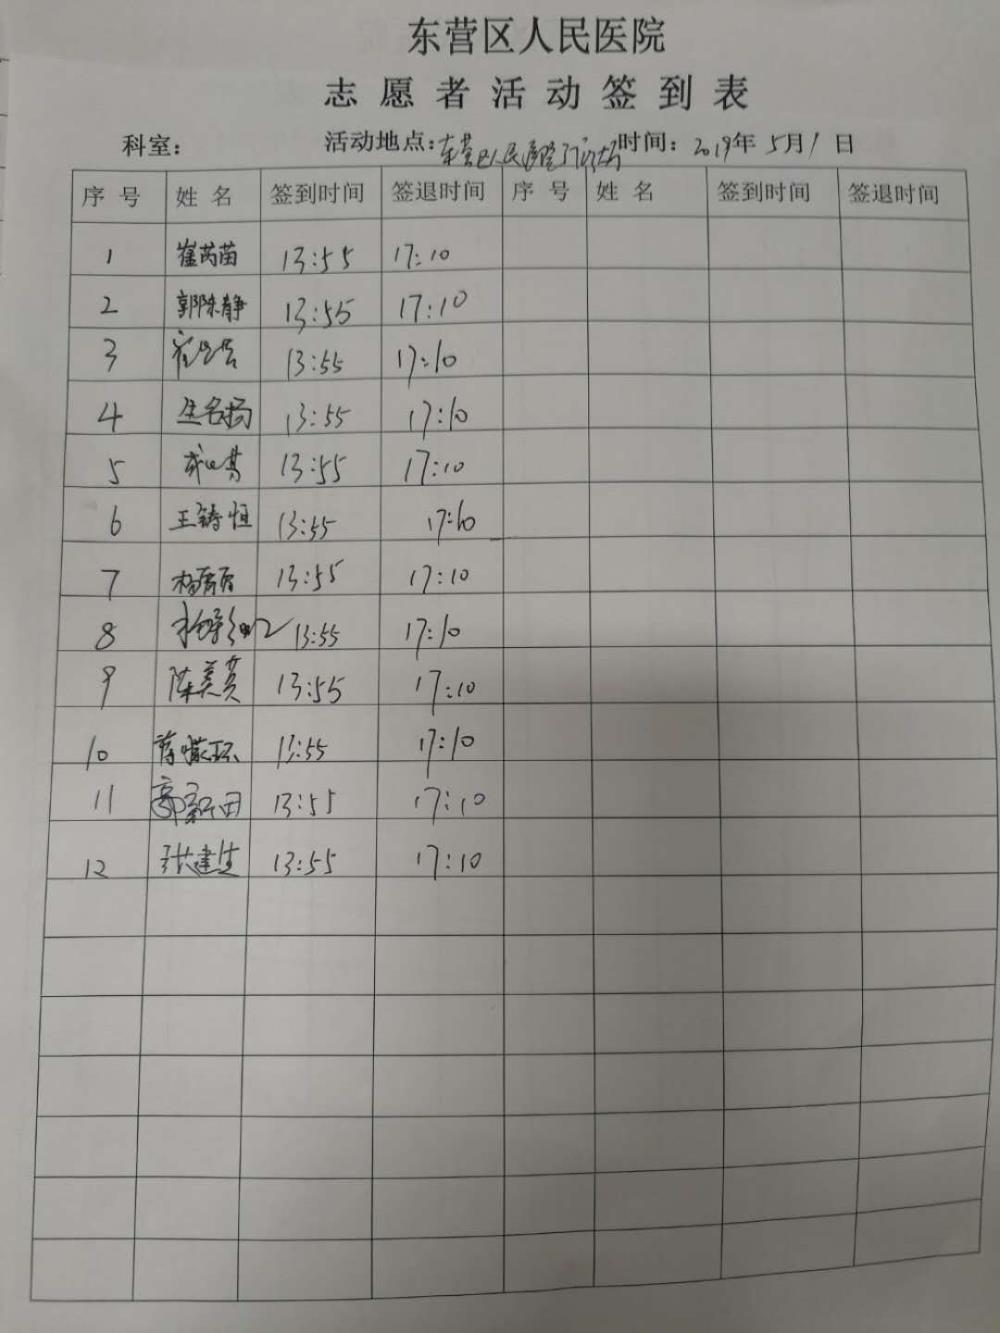 东营区人民医院
志愿者活动签到表
科室： 活动地点：东营区人民医院门诊 时间：2019年5月1日
序号 姓名 签到时间 签退时间 序号 姓名 签到时间 签退时间
1 崔芮苗 13:55 17:10
2 郭陈静 13:55 17:10
3 13:55 17:10
4 生名扬 13:55 17:10
5 13:55 17:10
6 王铸恒 13:55 17:10
7 13:55 17:10
8 13:55 17:10
9 陈美英 13:55 17:10
10 13:55 17:10
11 13:55 17:10
12 张建生 13:55 17:10